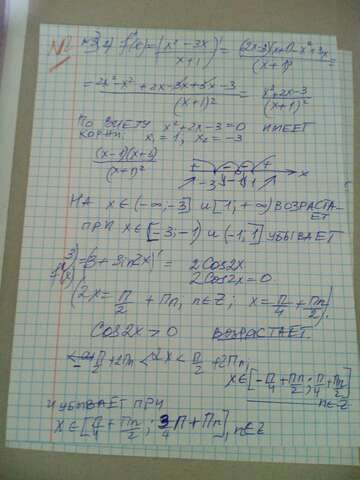 № 3,4 f'(x)=(x²-3x / x+1)' = (2x-3)(x+1)-x²+3x / (x+1)² =
= 2x²-x²+2x-3x+3x-3 / (x+1)² = x²+2x-3 / (x+1)²
ПО ВИЕТУ x²+2x-3=0 ИМЕЕТ
КОРНИ: x₁=1, x₂=-3
(x-1)(x+3) / (x+1)² + - - + x
-3 -1 1
НА x∈(-∞,-3] и [1,+∞) ВОЗРАСТАЕТ
ПРИ x∈[-3;-1) и (-1,1] УБЫВАЕТ
3) f'(x)=(3+sin2x)' = 2cos2x
2cos2x=0
(2x=П/2+Пn, n∈Z; x=П/4+Пn/2)
cos2x>0 ВОЗРАСТАЕТ
-П/2+2Пn<2x<П/2+2Пn,
x∈[-П/4+Пn/2; П/4+Пn/2]
n∈Z
И УБЫВАЕТ ПРИ
x∈[П/4+Пn/2; 3/4П+Пn], n∈Z